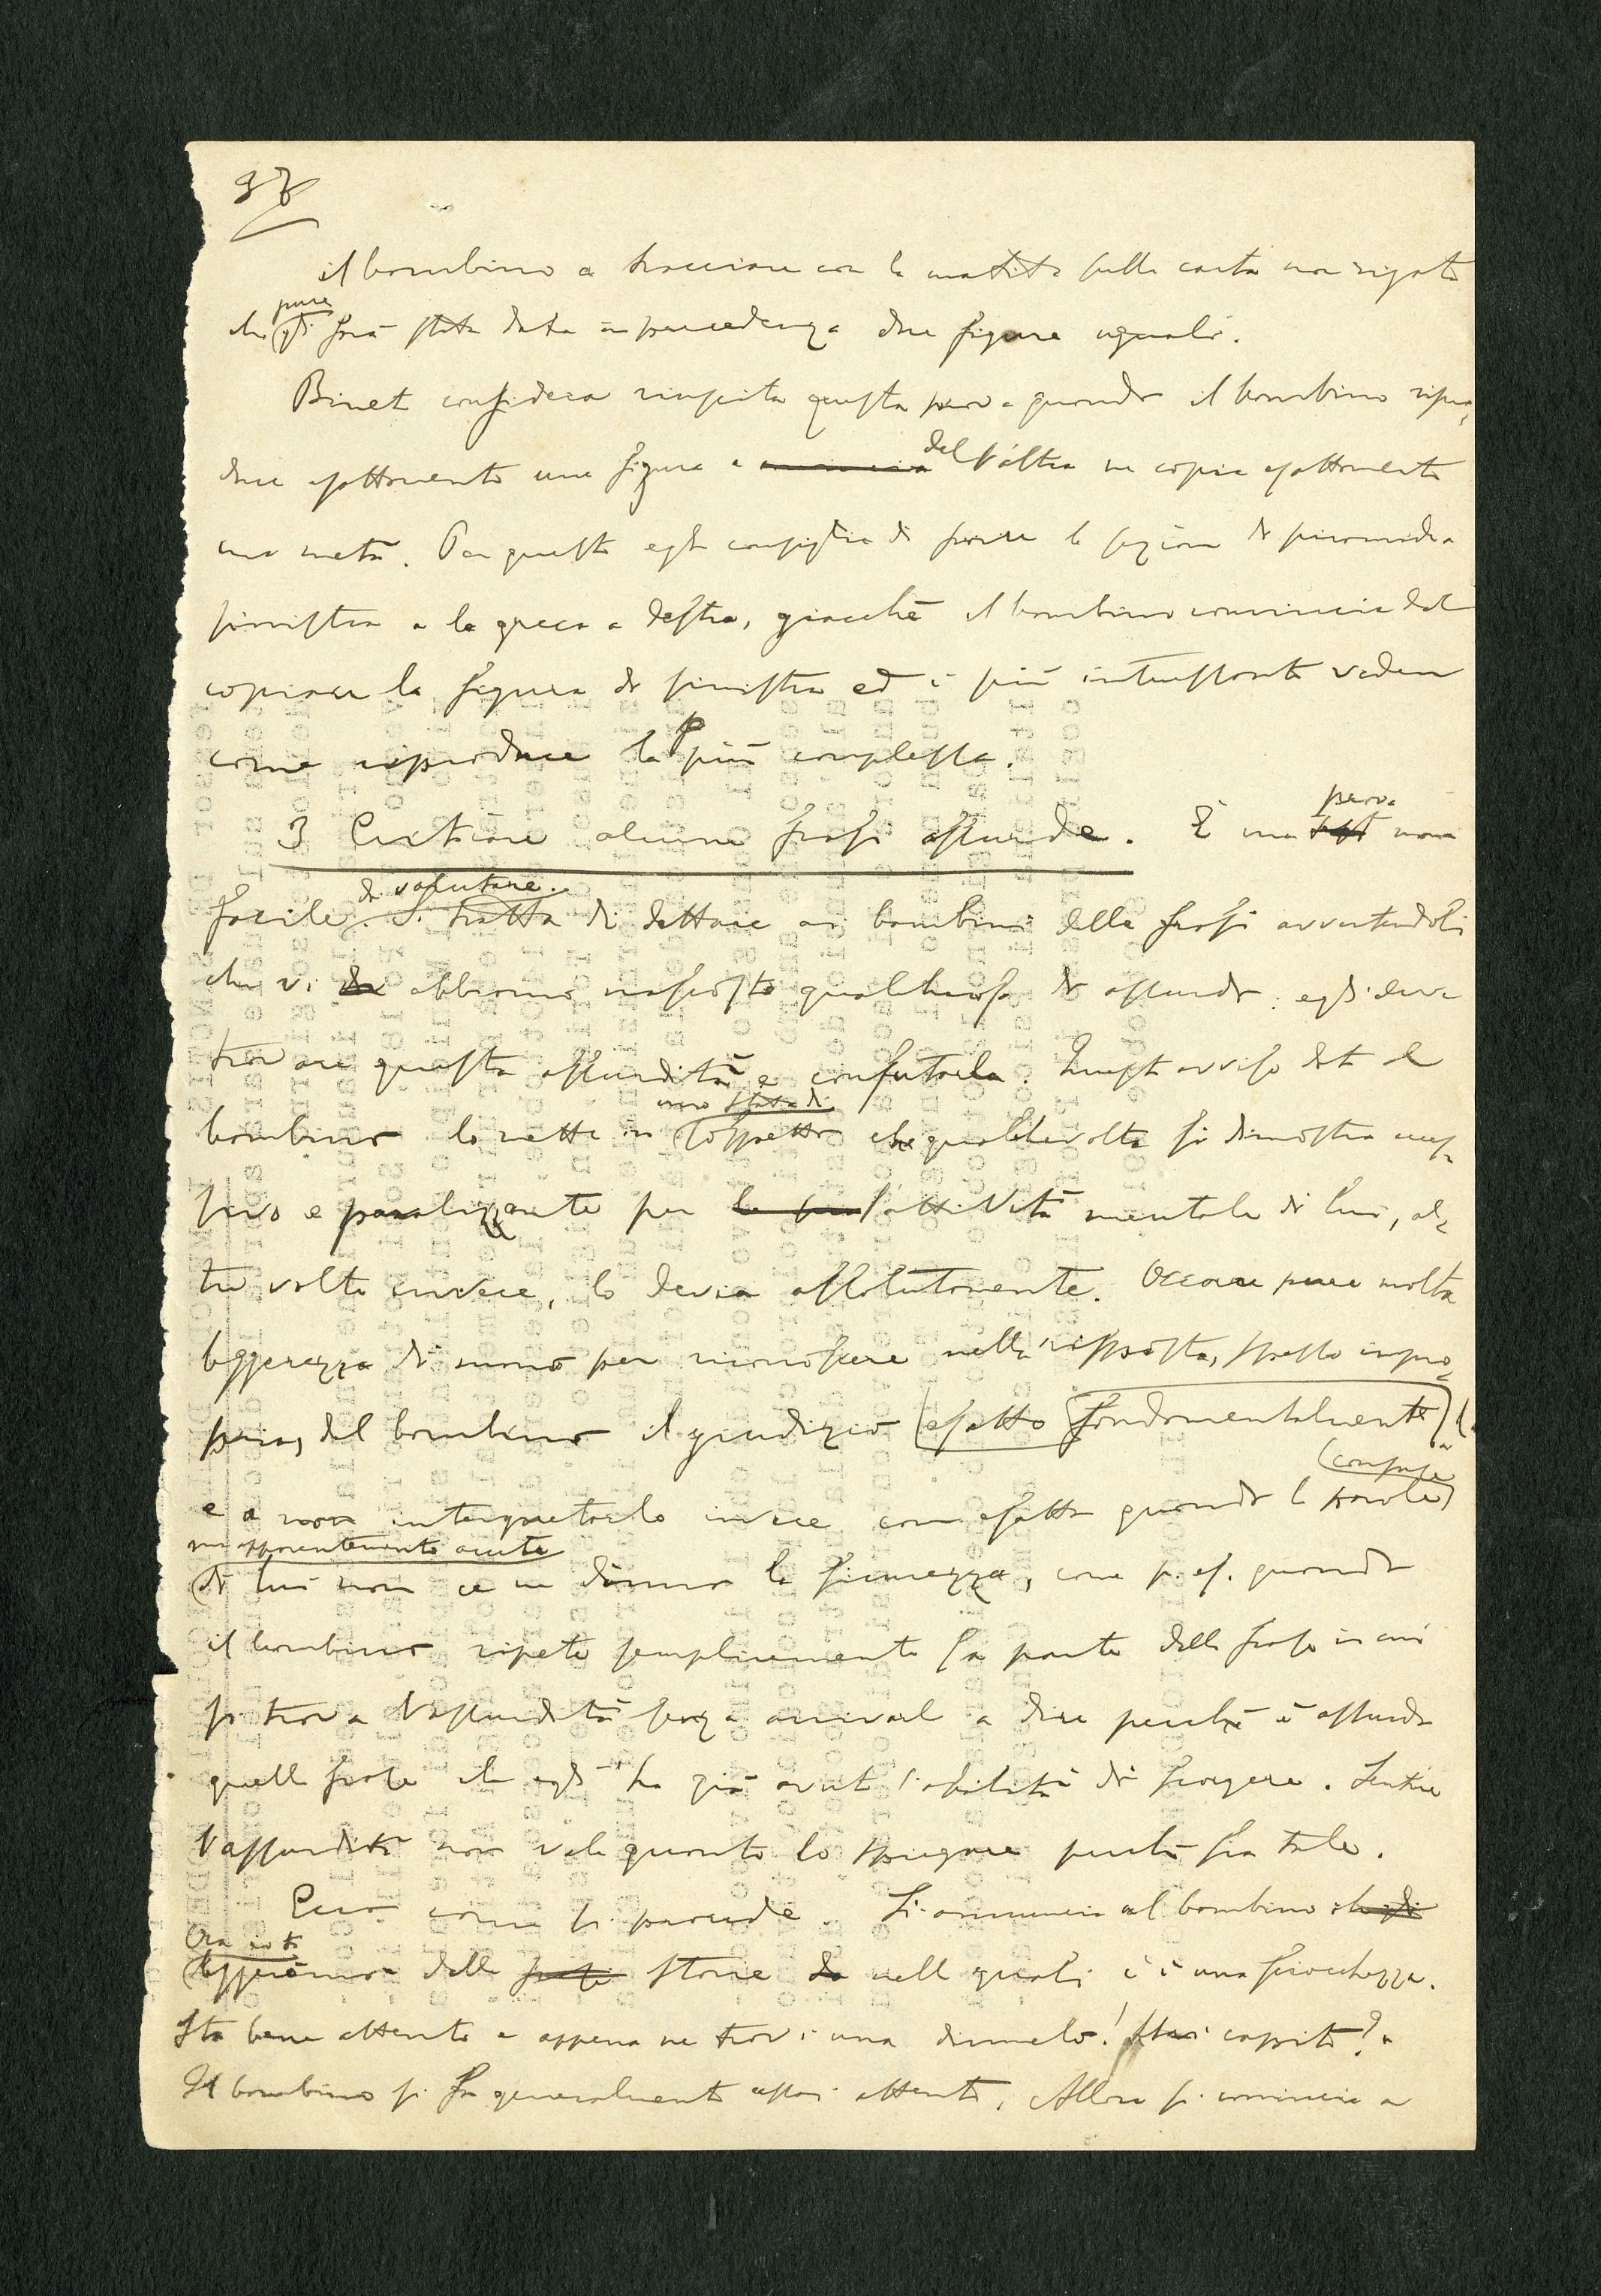 37
il bambino a tracciare con la matita sulla carta non rigata
che pure gli sarà stata data in precedenza due figure uguali.
Binet considera riuscita questa prova quando il bambino ripro-
duce esattamente una figura e del l'altra ne copia esattamente
una metà. Per questo egli consiglia di porre la sezione di piramide a
sinistra e la greca a destra, giacchè il bambino comincia dal
copiare la figura di sinistra ed è più interessante vedere
come riproduce la più complessa.
3 Criticare alcune frasi assurde. È una prova non
facile da valutare. Si tratta di dettare ai bambini delle frasi avvertendoli
che vi abbiamo nascosto qualchecosa di assurdo: egli deve
trovare questa assurdità e confutarla. Questo avviso dato al
bambino lo mette in uno stato di sospetto che qualchevolta si dimostra ecces-
sivo e paralizzante per l'attività mentale di lui, al-
tre volte invece, lo devia assolutamente. Occorre pure molta
leggerezza di mano per riconoscere nella risposta, spesso impro-
pria, del bambino il giudizio esatto fondamentalmente
e a non interpretarlo invece come esatto quando le parole confuse
ma apparentemente acute
di lui non ce ne danno la sicurezza, come p. es. quando
il bambino ripete semplicemente la parte della frase in cui
si trova l'assurdità senza arrivare a dire perchè è assurda
quella frase che egli ha già avuto l'abilità di scorgere. Sentire
l'assurdità non vale quanto lo spiegare perchè sia tale.
Ecco come si procede. Si annuncia al bambino che gli
Ora io ti
leggeremo delle frasi storie da nelle quali c'è una sciocchezza.
Sta bene attento e appena ne trovi una dimmelo! Hai capito?
Il bambino si fa generalmente assai attento. Allora si comincia a